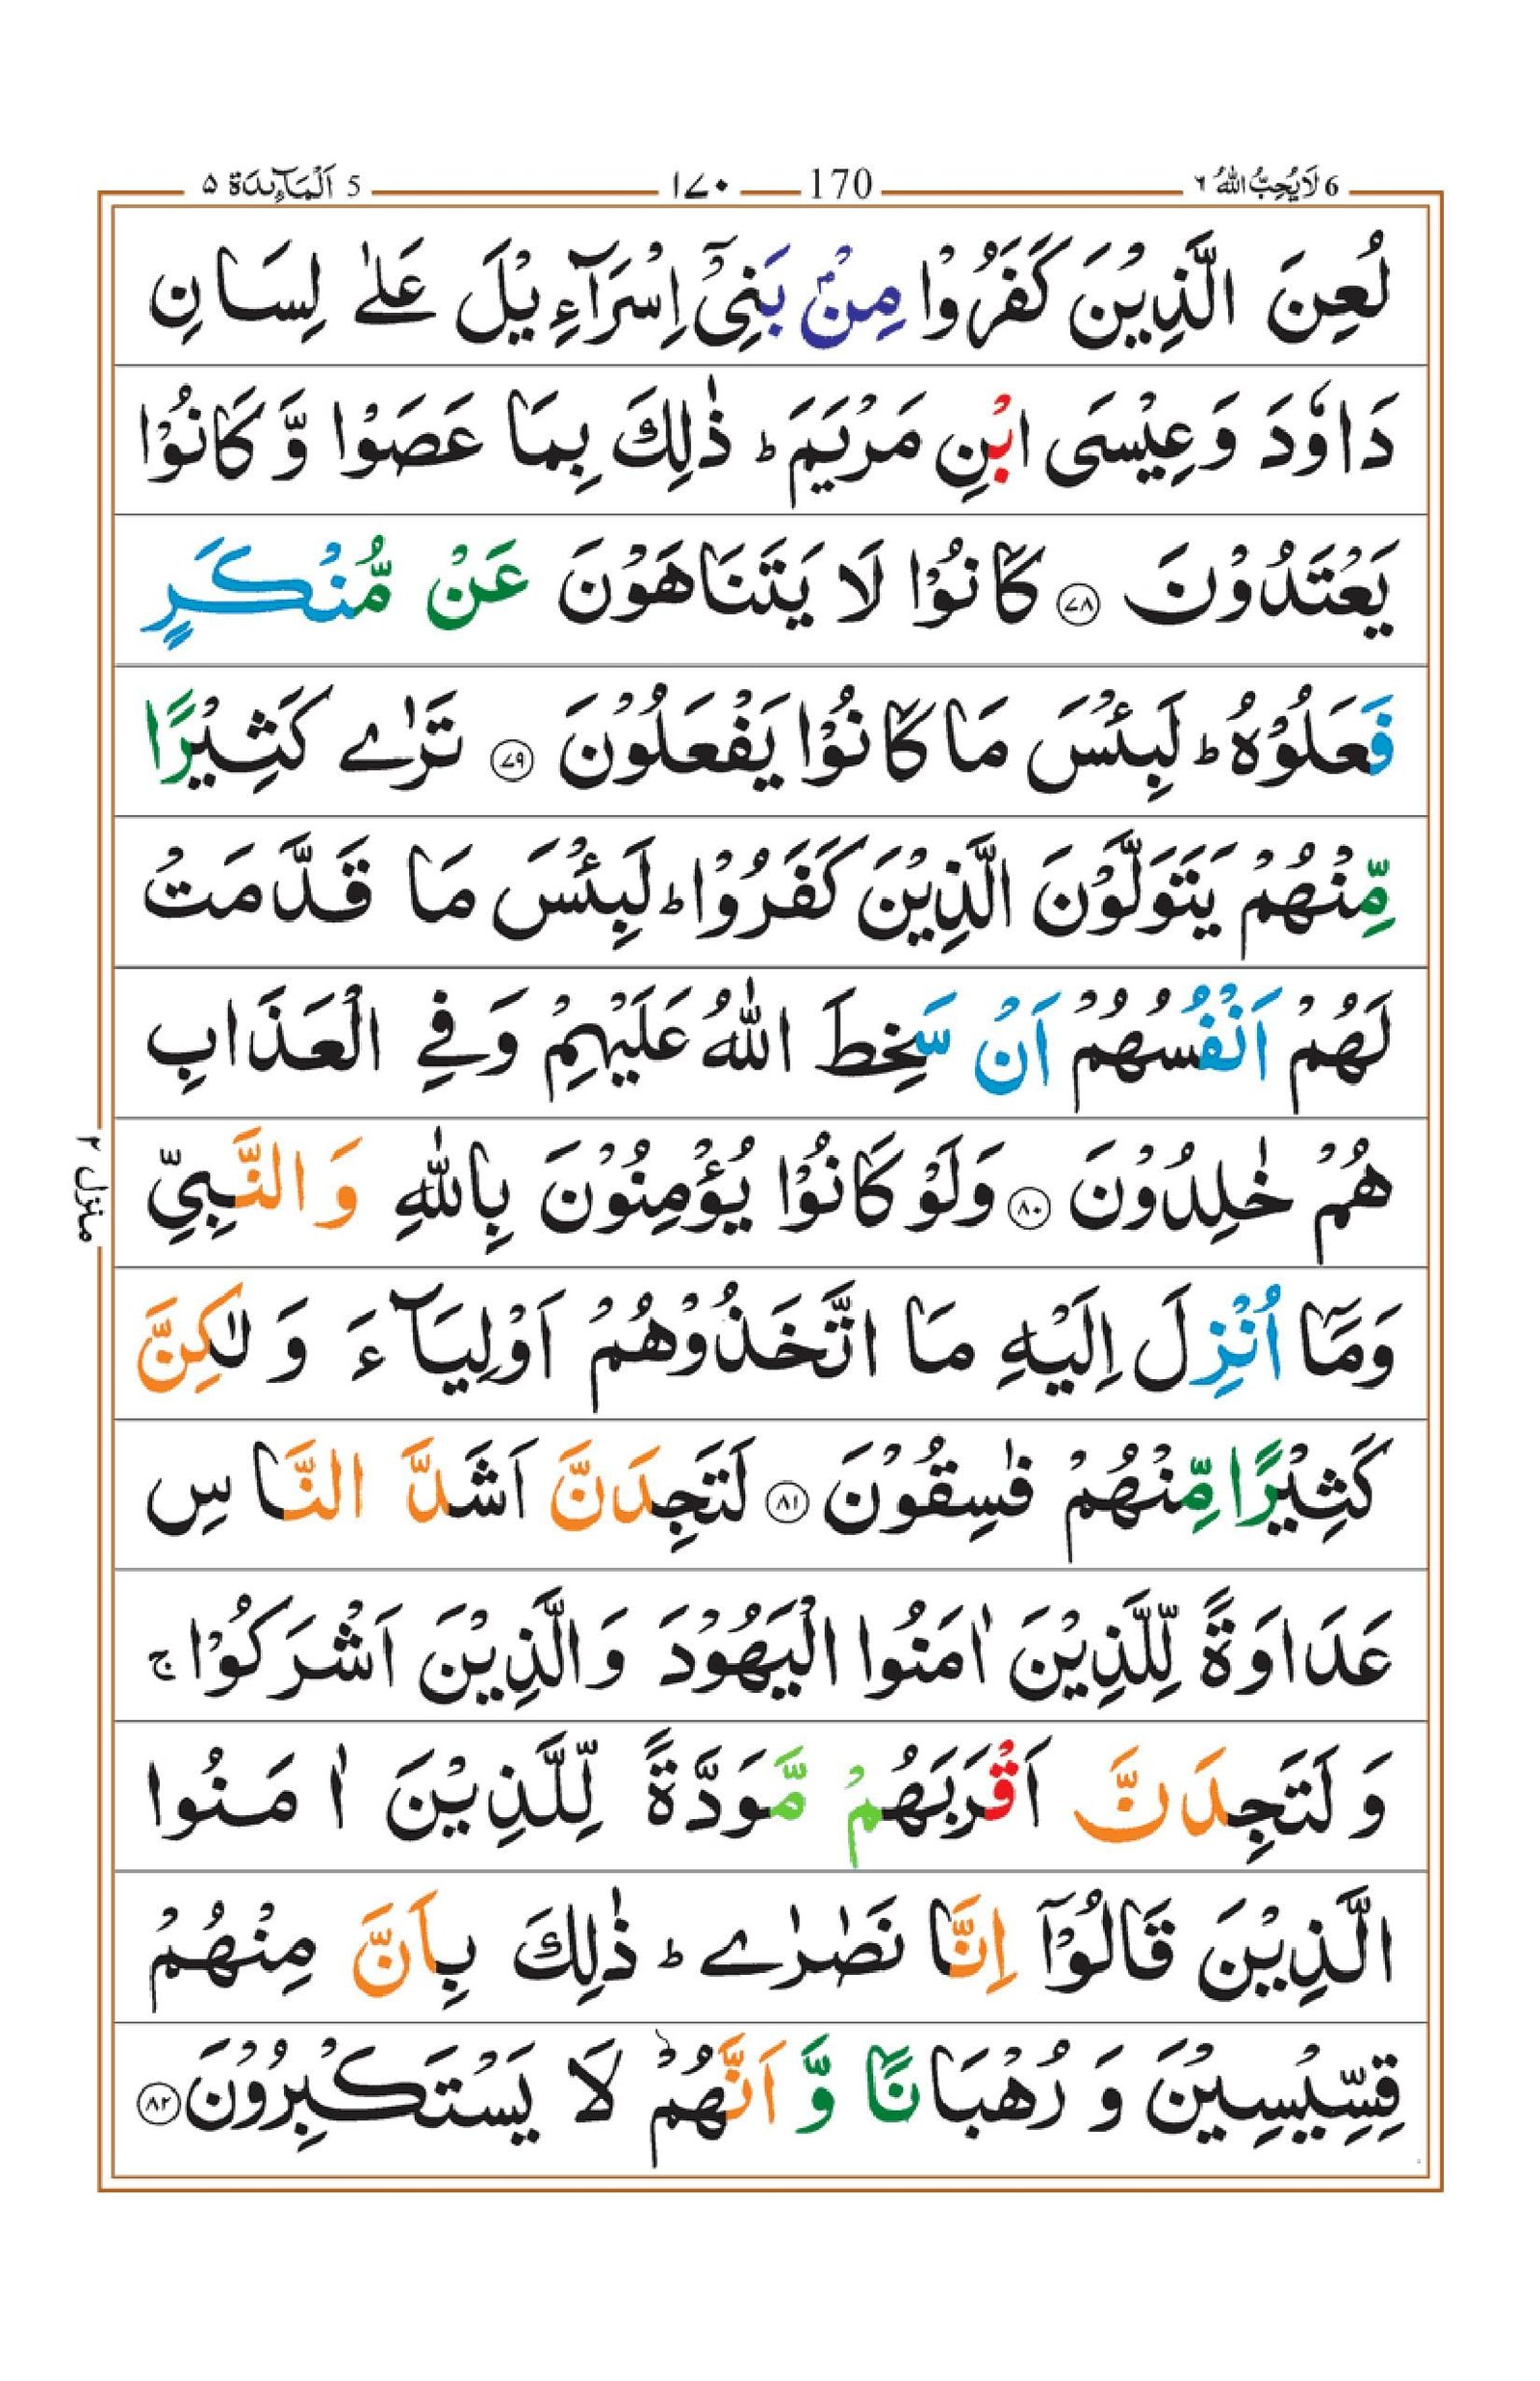 5 اَلْمَآئِدَة ۵ ١٧٠ 170 6 لَا يُحِبُّ اللّٰهُ ٦
لُعِنَ الَّذِيْنَ كَفَرُوْا مِنْۢ بَنِيْٓ اِسْرَآءِيْلَ عَلٰى لِسَانِ
دَاوٗدَ وَعِيْسَى ابْنِ مَرْيَمَ ؕ ذٰلِكَ بِمَا عَصَوْا وَّ كَانُوْا
يَعْتَدُوْنَ ﴿٧٨﴾ كَانُوْا لَا يَتَنَاهَوْنَ عَنْ مُّنْكَرٍ
فَعَلُوْهُ ؕ لَبِئْسَ مَا كَانُوْا يَفْعَلُوْنَ ﴿٧٩﴾ تَرٰى كَثِيْرًا
مِّنْهُمْ يَتَوَلَّوْنَ الَّذِيْنَ كَفَرُوْا ؕ لَبِئْسَ مَا قَدَّمَتْ
لَهُمْ اَنْفُسُهُمْ اَنْ سَخِطَ اللّٰهُ عَلَيْهِمْ وَفِي الْعَذَابِ
هُمْ خٰلِدُوْنَ ﴿٨٠﴾ وَلَوْ كَانُوْا يُؤْمِنُوْنَ بِاللّٰهِ وَالنَّبِيِّ
وَمَآ اُنْزِلَ اِلَيْهِ مَا اتَّخَذُوْهُمْ اَوْلِيَآءَ وَلٰكِنَّ
كَثِيْرًا مِّنْهُمْ فٰسِقُوْنَ ﴿٨١﴾ لَتَجِدَنَّ اَشَدَّ النَّاسِ
عَدَاوَةً لِّلَّذِيْنَ اٰمَنُوا الْيَهُوْدَ وَالَّذِيْنَ اَشْرَكُوْا ۚ
وَلَتَجِدَنَّ اَقْرَبَهُمْ مَّوَدَّةً لِّلَّذِيْنَ اٰمَنُوا
الَّذِيْنَ قَالُوْٓا اِنَّا نَصٰرٰى ؕ ذٰلِكَ بِاَنَّ مِنْهُمْ
قِسِّيْسِيْنَ وَ رُهْبَانًا وَّ اَنَّهُمْ لَا يَسْتَكْبِرُوْنَ ﴿٨٢﴾
منزل ٢